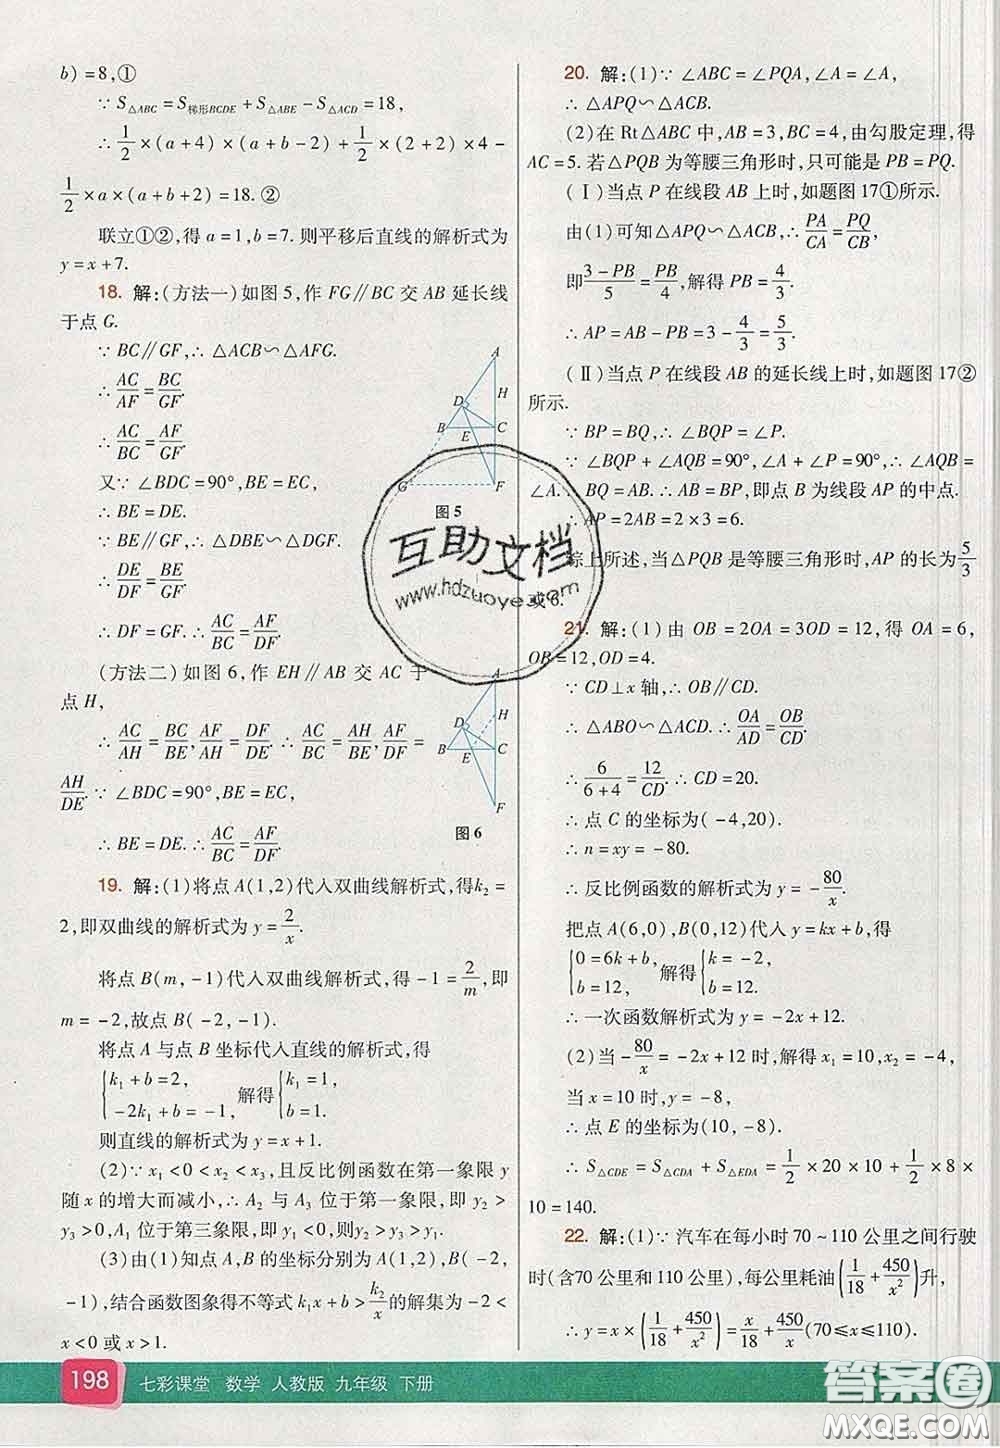 b) =8,①
∵ S△ABC = S梯形BCDE + S△ABE − S△ACD = 18,
∴ 1/2 ×(a+4)×(a+b−2)+ 1/2 ×(b+2)×4−
1/2 ×a×(a+b+2)=18. ②
联立①②,得 a=1,b=7. 则平移后直线的解析式为
y=x+7.
18. 解:(方法一)如图5,作 FG∥BC 交 AB 延长线
于点 G.
∵ BC∥GF,∴ △ACB∽△AFG.
∴ AC/AF = BC/GF.
∴ AC/BC = AF/GF.
又∵ ∠BDC=90°,BE=EC,
∴ BE=DE.
∵ BE∥GF,∴ △DBE∽△DGF.
∴ DE/DF = BE/GF.
∴ DF=GF.∴ AC/BC = AF/DF.
A
H
D
B E C
G F
图5
(方法二)如图6,作 EH∥AB 交 AC 于
点 H,
∴ AC/AH = BC/BE, AF/AH = DF/DE. ∴ AC/BC = AH/BE, AF/DF =
AH/DE. ∵ ∠BDC=90°,BE=EC,
∴ BE=DE. ∴ AC/BC = AF/DF.
A
H
D
B E C
F
图6
19. 解:(1)将点A(1,2)代入双曲线解析式,得k₂=
2,即双曲线的解析式为 y= 2/x.
将点 B(m,−1)代入双曲线解析式,得 −1= 2/m,即
m=−2,故点 B(−2,−1).
将点 A 与点 B 坐标代入直线的解析式,得
{k₁+b=2, −2k₁+b=−1, 解得 {k₁=1, b=1.
则直线的解析式为 y=x+1.
(2)∵ x₁<0<x₂<x₃,且反比例函数在第一象限 y
随 x 的增大而减小,∴ A₂ 与 A₃ 位于第一象限,即 y₂>
y₃>0,A₁ 位于第三象限,即 y₁<0,则y₂>y₃>y₁.
(3)由(1)知点 A,B 的坐标分别为 A(1,2),B(−2,
−1),结合函数图象得不等式 k₁x+b> k₂/x 的解集为 −2<
x<0 或 x>1.
20. 解:(1)∵ ∠ABC=∠PQA,∠A=∠A,
∴ △APQ∽△ACB.
(2)在 Rt△ABC 中,AB=3,BC=4,由勾股定理,得
AC=5. 若△PQB 为等腰三角形时,只可能是 PB=PQ.
(Ⅰ)当点 P 在线段 AB 上时,如题图17①所示.
由(1)可知△APQ∽△ACB,∴ PA/CA = PQ/CB,
即 (3−PB)/5 = PB/4,解得 PB= 4/3.
∴ AP=AB−PB=3− 4/3 = 5/3.
(Ⅱ)当点 P 在线段 AB 的延长线上时,如题图17②
所示.
∵ BP=BQ,∴ ∠BQP=∠P.
∵ ∠BQP+∠AQB=90°,∠A+∠P=90°,∴ ∠AQB=
∠A.∴ BQ=AB.∴ AB=BP,即点 B 为线段 AP 的中点.
∴ AP=2AB=2×3=6.
综上所述,当△PQB 是等腰三角形时,AP 的长为 5/3
或6.
21. 解:(1)由 OB=2OA=3OD=12,得 OA=6,
OB=12,OD=4.
∵ CD⊥x 轴,∴ OB∥CD.
∴ △ABO∽△ACD.∴ OA/AD = OB/CD.
∴ 6/(6+4) = 12/CD.∴ CD=20.
∴ 点 C 的坐标为(−4,20).
∴ n=xy=−80.
∴ 反比例函数的解析式为 y=− 80/x.
把点A(6,0),B(0,12)代入 y=kx+b,得
{0=6k+b, b=12, 解得 {k=−2, b=12.
∴ 一次函数解析式为 y=−2x+12.
(2)当− 80/x =−2x+12 时,解得 x₁=10,x₂=−4,
当 x=10 时,y=−8,
∴ 点 E 的坐标为(10,−8).
∴ S△CDE = S△CDA + S△EDA = 1/2 ×20×10+ 1/2 ×8×
10=140.
22. 解:(1)∵ 汽车在每小时 70~110 公里之间行驶
时(含70 公里和 110 公里),每公里耗油(1/18 + 450/x²)升,
∴ y=x×(1/18 + 450/x²)= x/18 + 450/x (70≤x≤110).
198 七彩课堂 数学 人教版 九年级 下册
互助文档
www.hdzuoye.com
答案圈
MXQE.COM